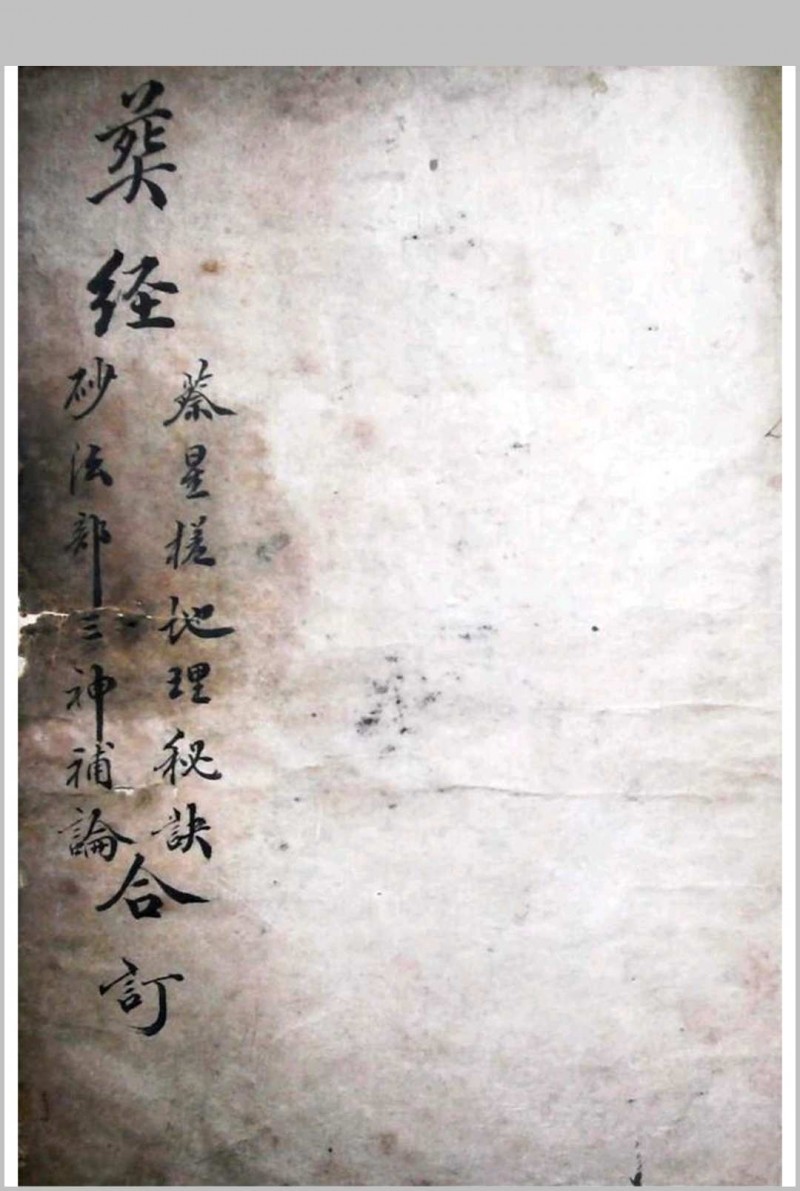 葬経
蔡星槎地理秘訣
砂法部三神補論
合訂